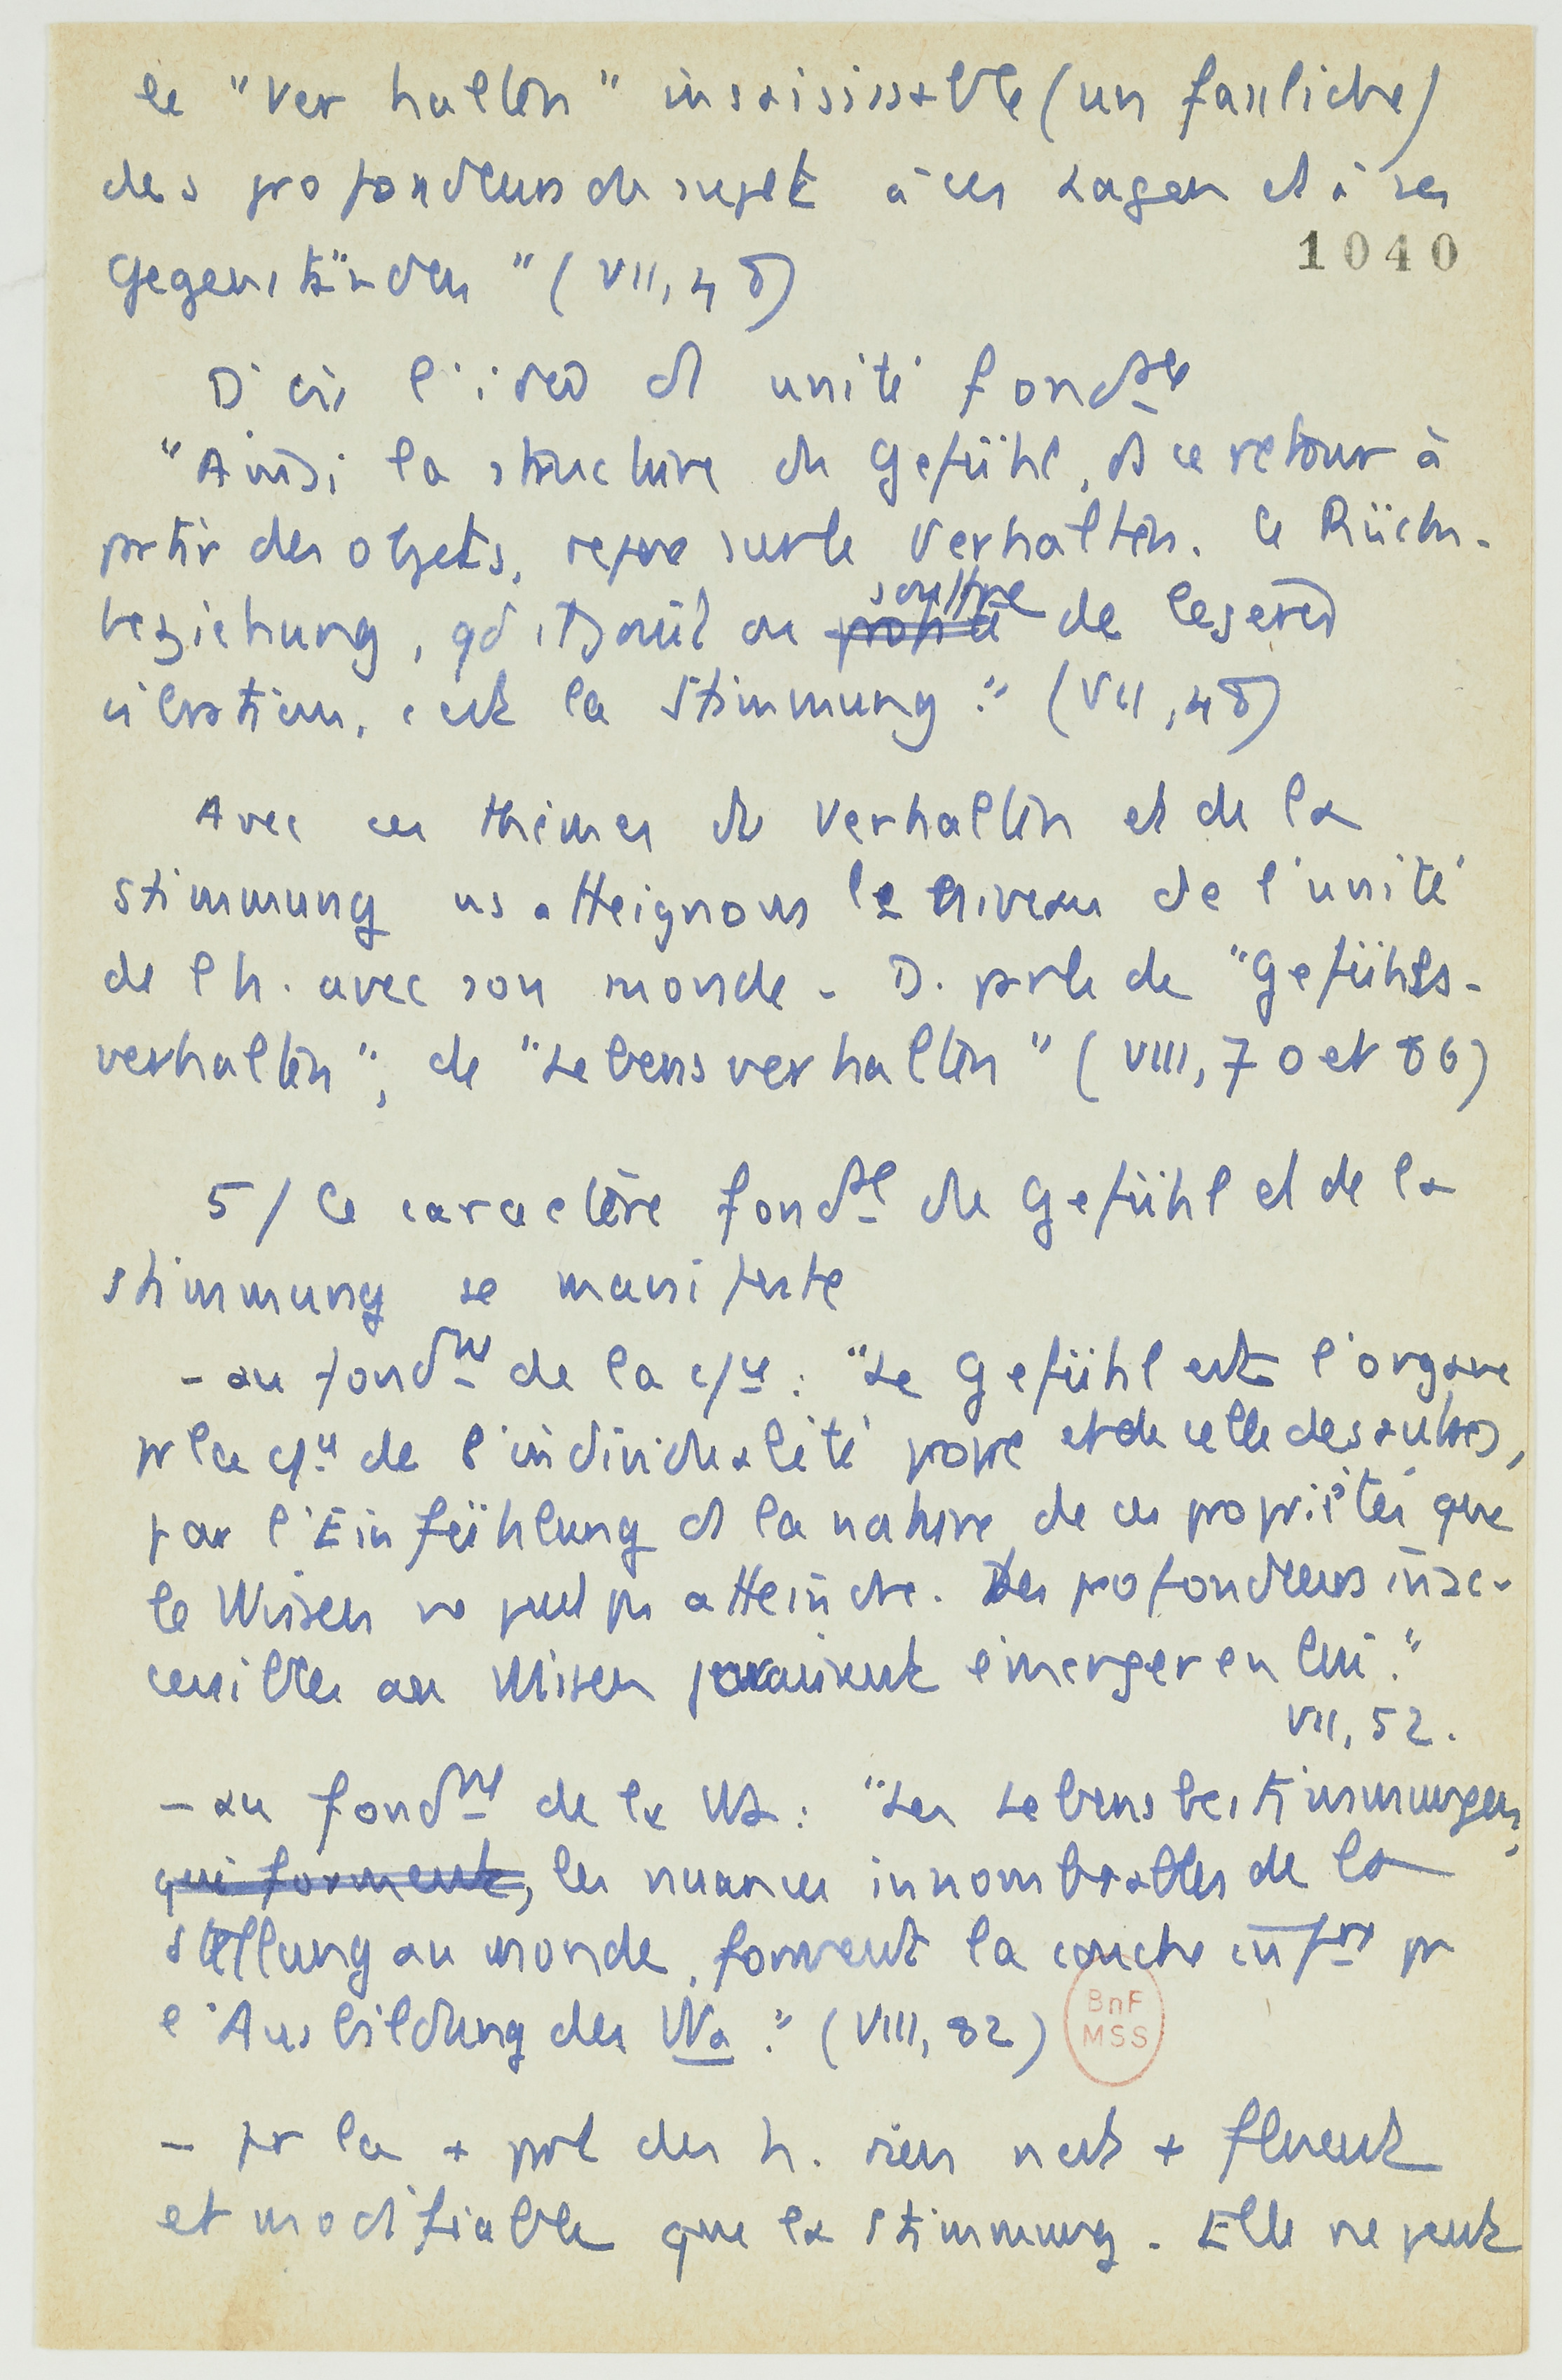 le "Verhalten" insaisissable (unfassliche)
des profondeurs du sujet à ces Lagen et à ses
1040
Gegenständen" (VII, 48)
D'où l'idée d'unité fondale
"Ainsi la structure du Gefühl, et ce retour à
partir des objets, repose sur le Verhalten. La Rück-
beziehung, qd il s'agit du profil souffle de légères
vibrations, c'est la Stimmung." (VII, 48)
Avec ces thèmes du Verhalten et de la
Stimmung ns atteignons le niveau de l'unité
de l'h. avec son monde - D. parle de "Gefühls-
verhalten", de "Lebensverhalten" (VIII, 70 et 86)
5/ Le caractère fondal du Gefühl et de la
Stimmung se manifeste
- au fondmt de la c/ce : "Le Gefühl est l'organe
pr la c/ce de l'individualité propre et de celle des autres,
par l'Einfühlung ds la nature de ces propriétés que
le Wissen ne peut pas atteindre. Des profondeurs inac-
cessibles au Wissen paraissent émerger en lui."
VII, 52.
- au fondmt de la WA : "Les Lebensbestimmungen,
qui forment, les nuances innombrables de la
Stellung au monde, forment la couche infre pr
l'Ausbildung der WA." (VIII, 82)
BnF
MSS
- pr la + part des h. rien n'est + fluent
et modifiable que la Stimmung. Elle ne peut